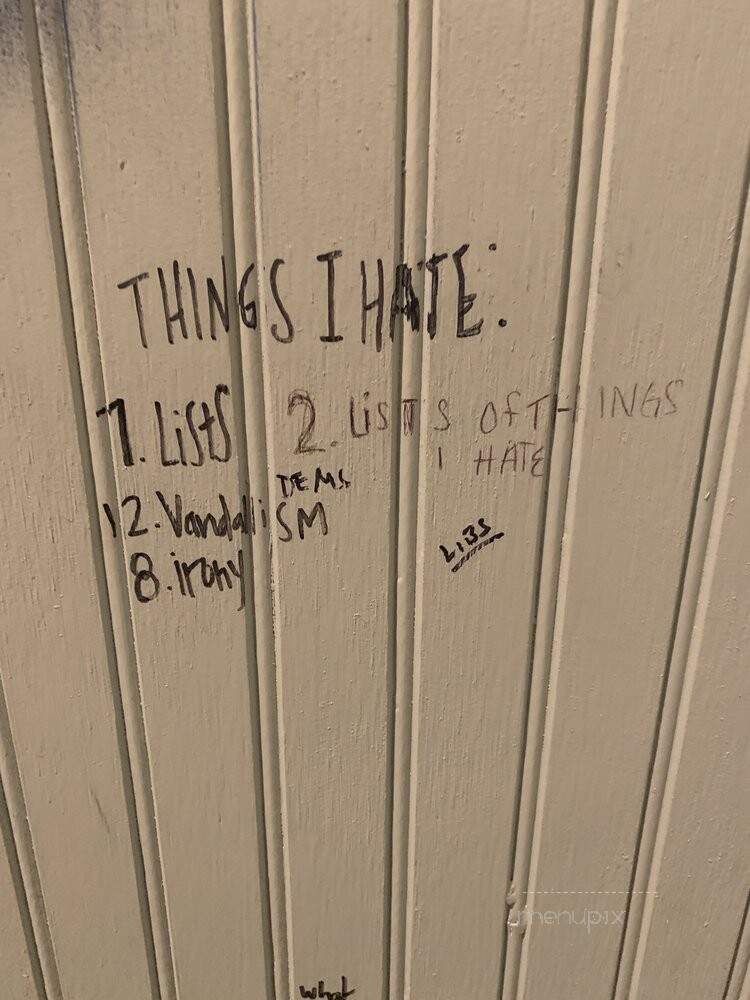 THINGS I HATE:
1. Lists
2. LISTS OF THINGS
I HATE
DEMS
12. VandalliSM
LIBS
8. irony
menupix
what